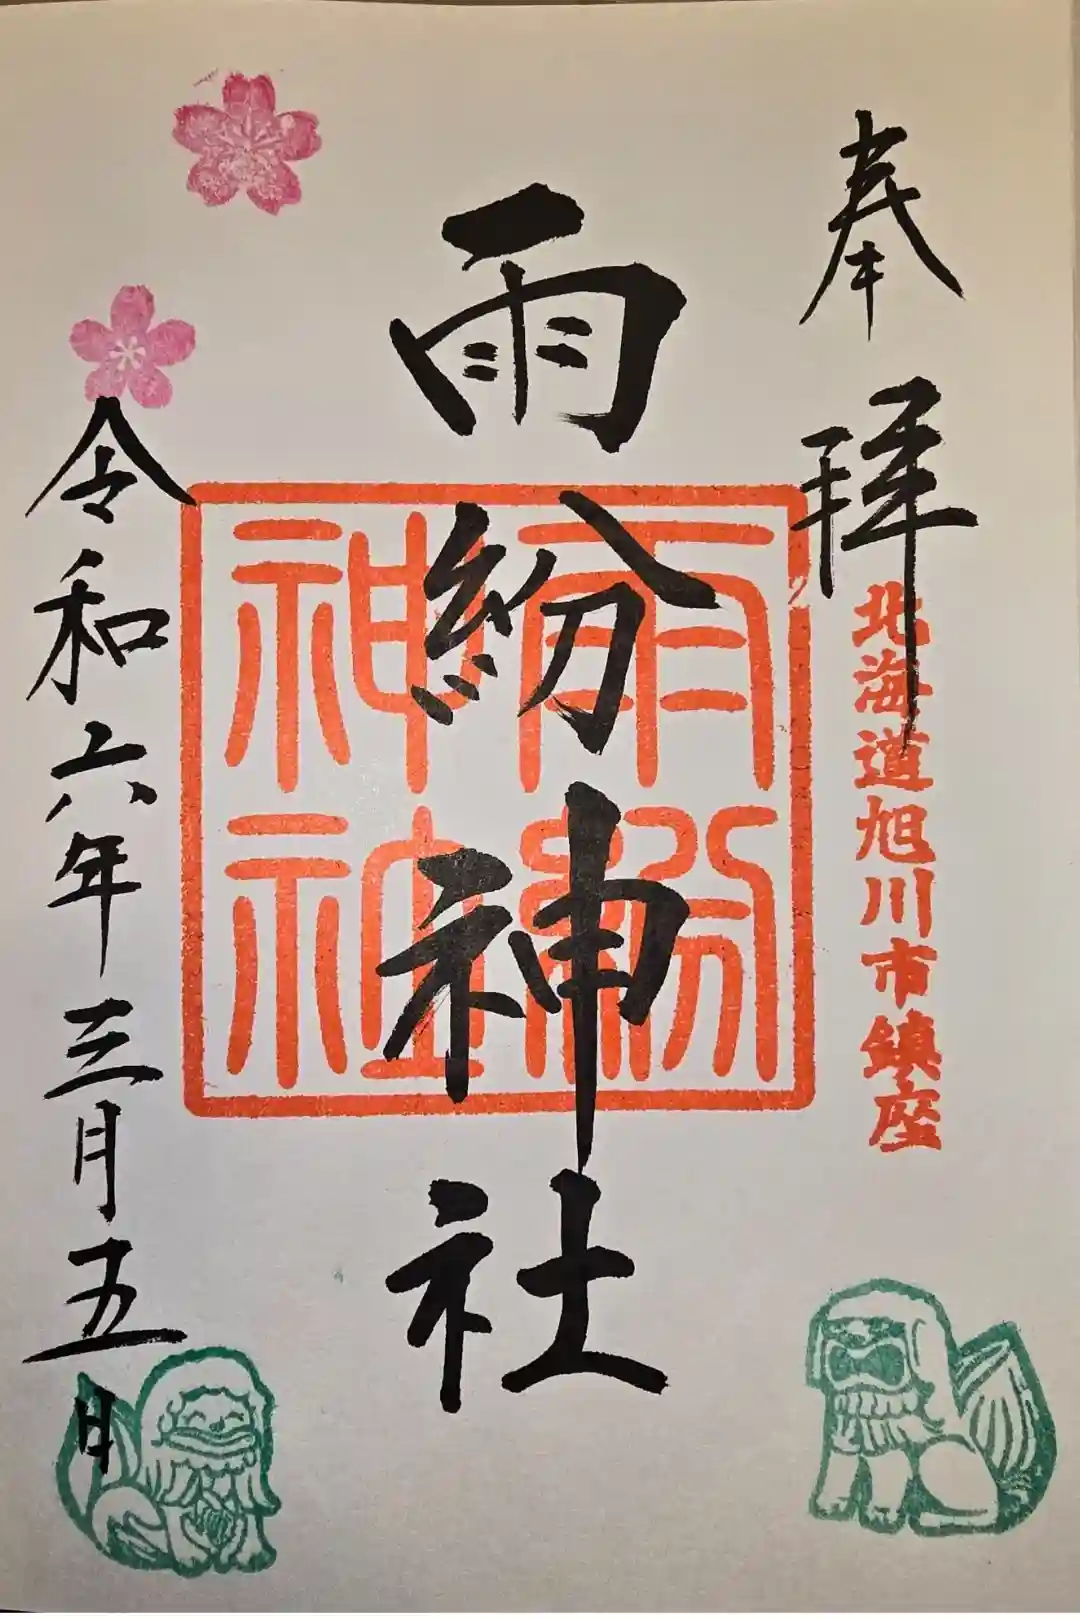 奉拝
北海道旭川市鎮座
雨紛神社
雨紛
神社
令和六年三月五日